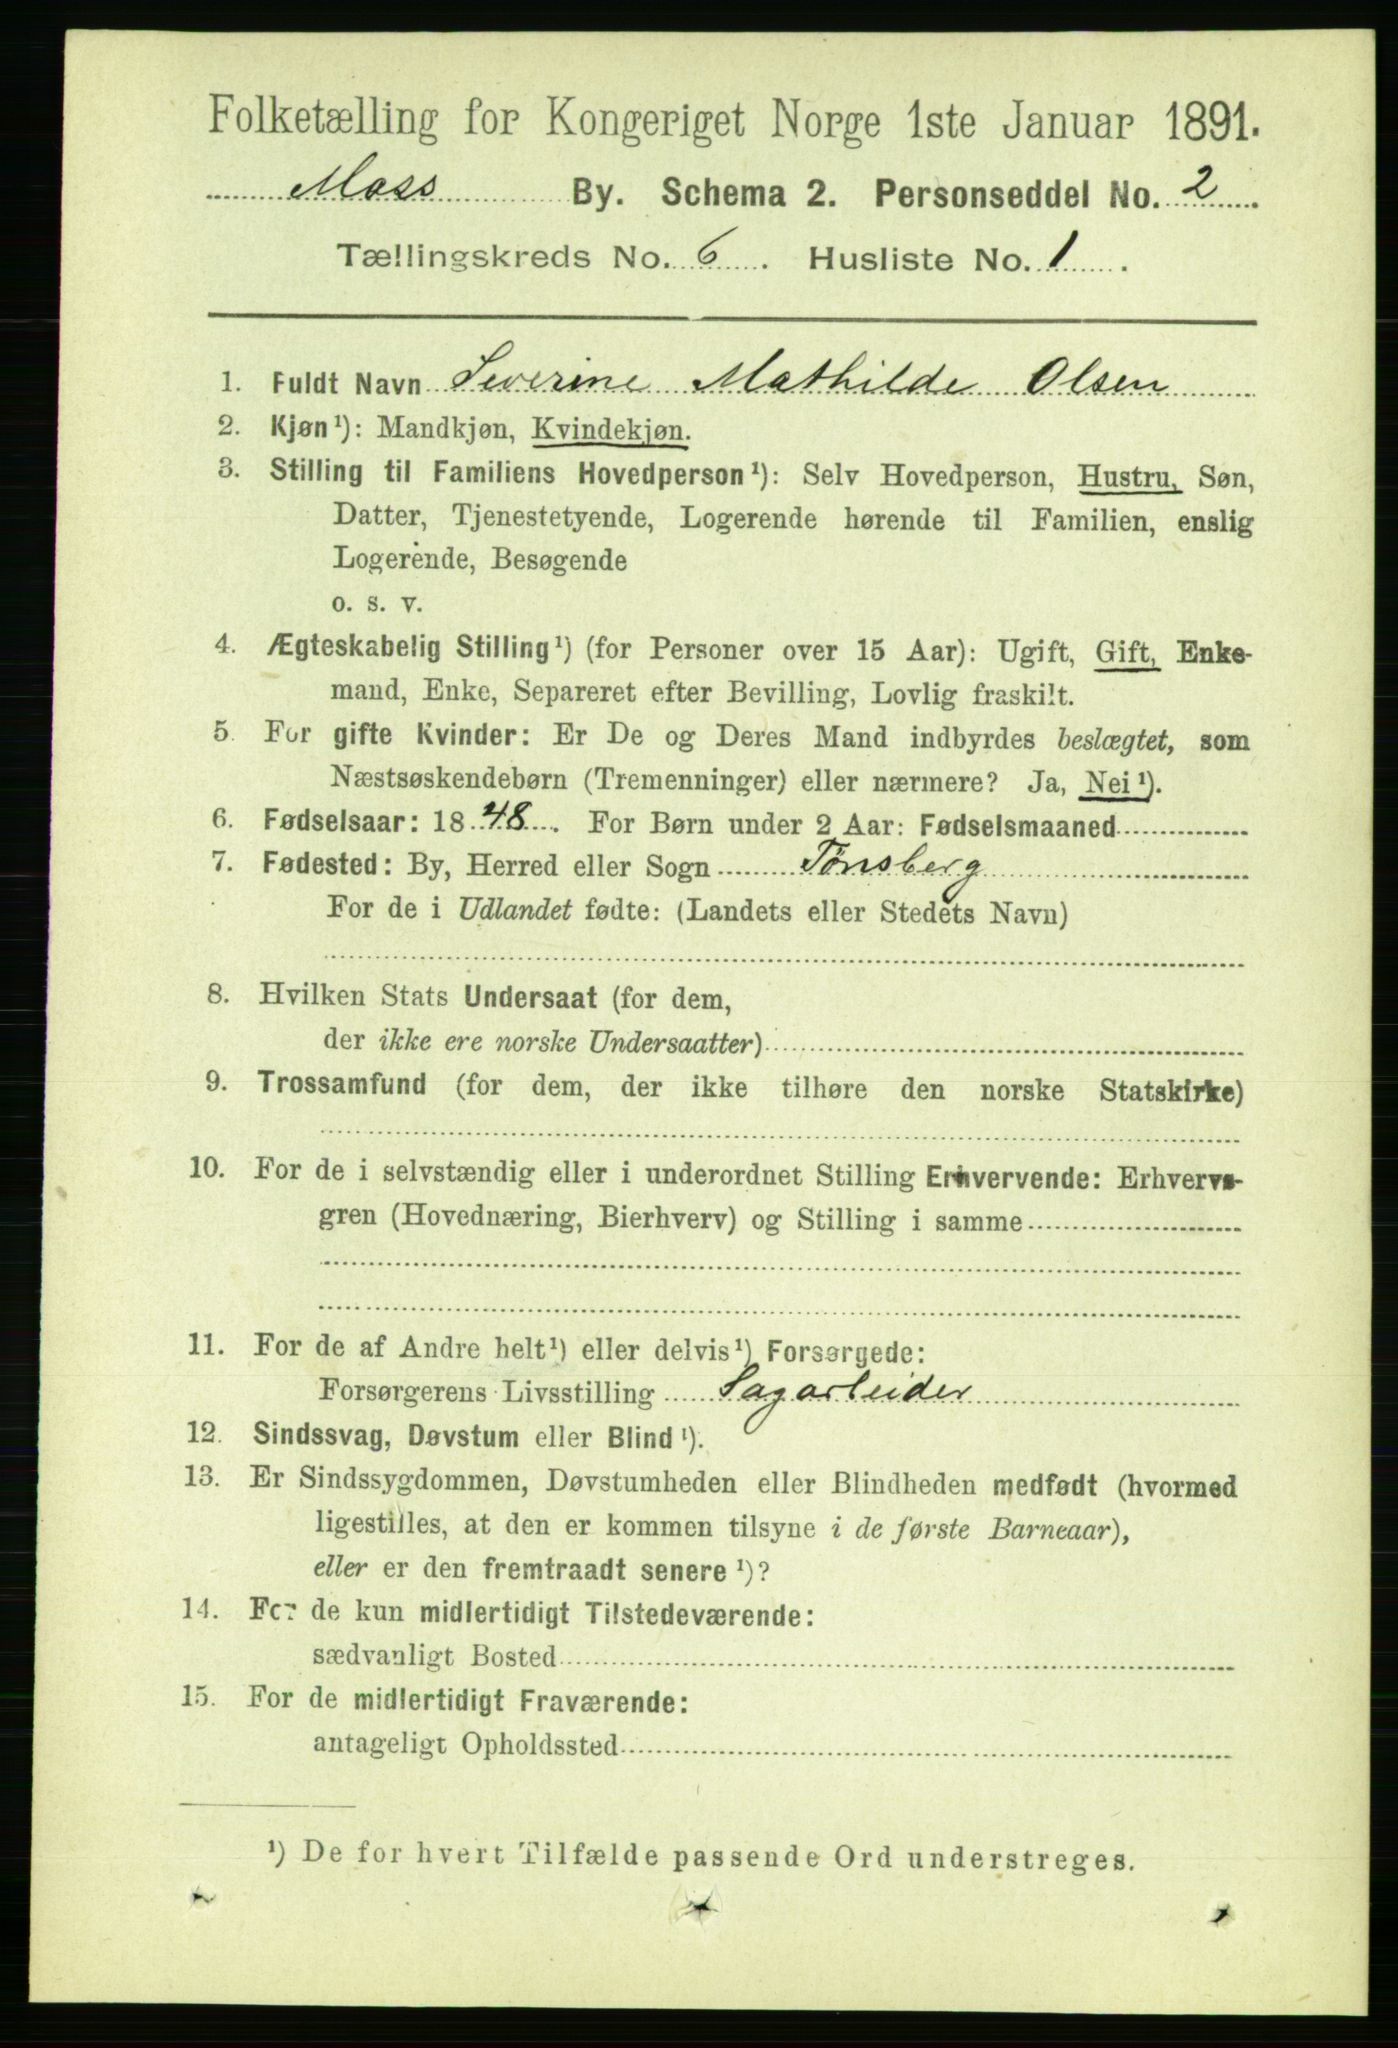 Folketælling for Kongeriget Norge 1ste Januar 1891.
Moss By. Schema 2. Personseddel No. 2.
Tællingskreds No. 6. Husliste No. 1.
1. Fuldt Navn Severine Mathilde Olsen
2. Kjøn¹): Mandkjøn, Kvindekjøn.
3. Stilling til Familiens Hovedperson¹): Selv Hovedperson, Hustru, Søn,
Datter, Tjenestetyende, Logerende hørende til Familien, enslig
Logerende, Besøgende
o. s. v.
4. Ægteskabelig Stilling¹) (for Personer over 15 Aar): Ugift, Gift, Enke-
mand, Enke, Separeret efter Bevilling, Lovlig fraskilt.
5. For gifte Kvinder: Er De og Deres Mand indbyrdes beslægtet, som
Næstsøskendebørn (Tremenninger) eller nærmere? Ja, Nei¹).
6. Fødselsaar: 1848. For Børn under 2 Aar: Fødselsmaaned
7. Fødested: By, Herred eller Sogn Tønsberg
For de i Udlandet fødte: (Landets eller Stedets Navn)
8. Hvilken Stats Undersaat (for dem,
der ikke ere norske Undersaatter)
9. Trossamfund (for dem, der ikke tilhøre den norske Statskirke)
10. For de i selvstændig eller i underordnet Stilling Erhvervende: Erhvervs-
gren (Hovednæring, Bierhverv) og Stilling i samme
11. For de af Andre helt¹) eller delvis¹) Forsørgede:
Forsørgerens Livsstilling Sagarbeider
12. Sindssvag, Døvstum eller Blind¹).
13. Er Sindssygdommen, Døvstumheden eller Blindheden medfødt (hvormed
ligestilles, at den er kommen tilsyne i de første Barneaar),
eller er den fremtraadt senere¹)?
14. For de kun midlertidigt Tilstedeværende:
sædvanligt Bosted
15. For de midlertidigt Fraværende:
antageligt Opholdssted
¹) De for hvert Tilfælde passende Ord understreges.